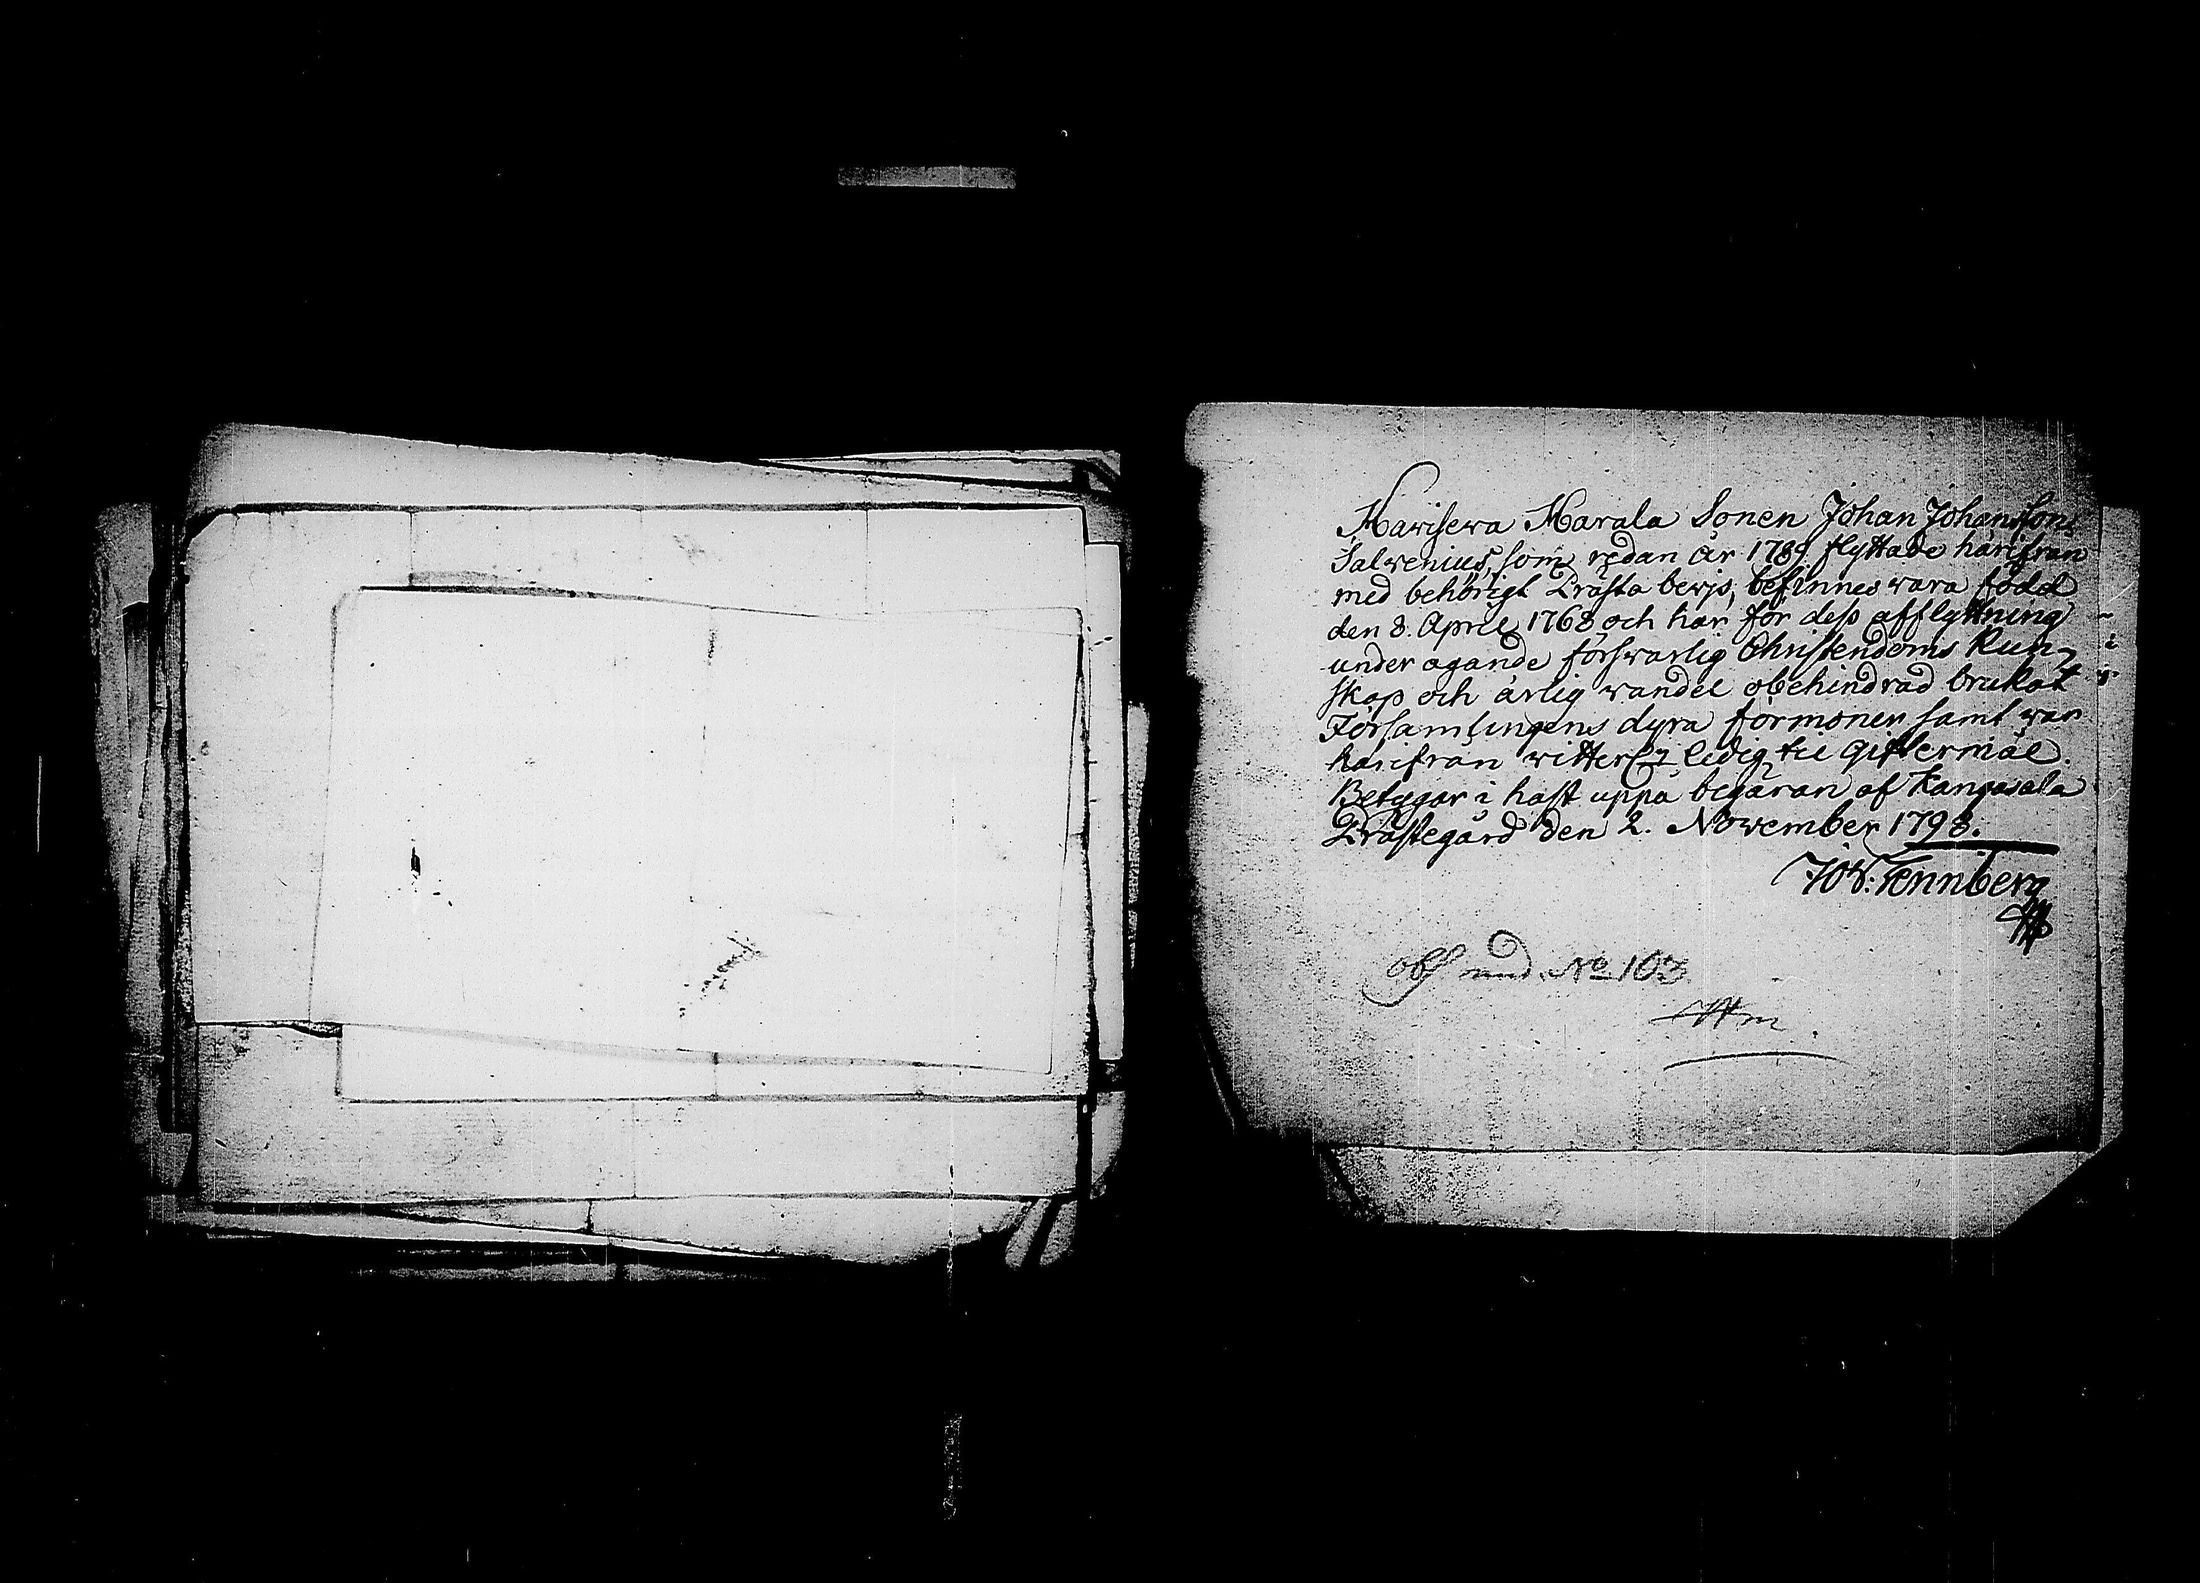 Hawisewa Harala Sonen Johan Johansson
Salvenius, som redan år 1789 flyttade härifrån
med behörigt Prästa bewjs, befinnes wara född
den 8. April 1768 och har för dess afflyttning
under ägande förswarlig Christendoms Kun-
skap och ärlig wandel obehindrad brukat
Församlingens dyra förmoner samt war
härifrån witterlig ledig til Giftermål.
Betygar i hast uppå begäran af Kangasala
Prästegård den 2. November 1798.
Joh: Tennberg
obs und. No 103